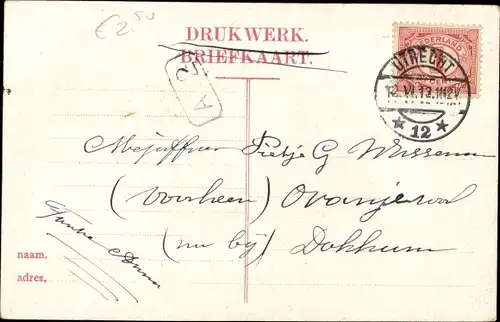 €2.50
DRUKWERK.
BRIEFKAART.
NEDERLAND
UTRECHT
12.VI.13.11-12V
* 12 *
A 2
Mejuffrer Pietje G Wissema
(voorheen) Oranjewol
(nu bij) Dokkum
Tante Anna
naam.
adres.